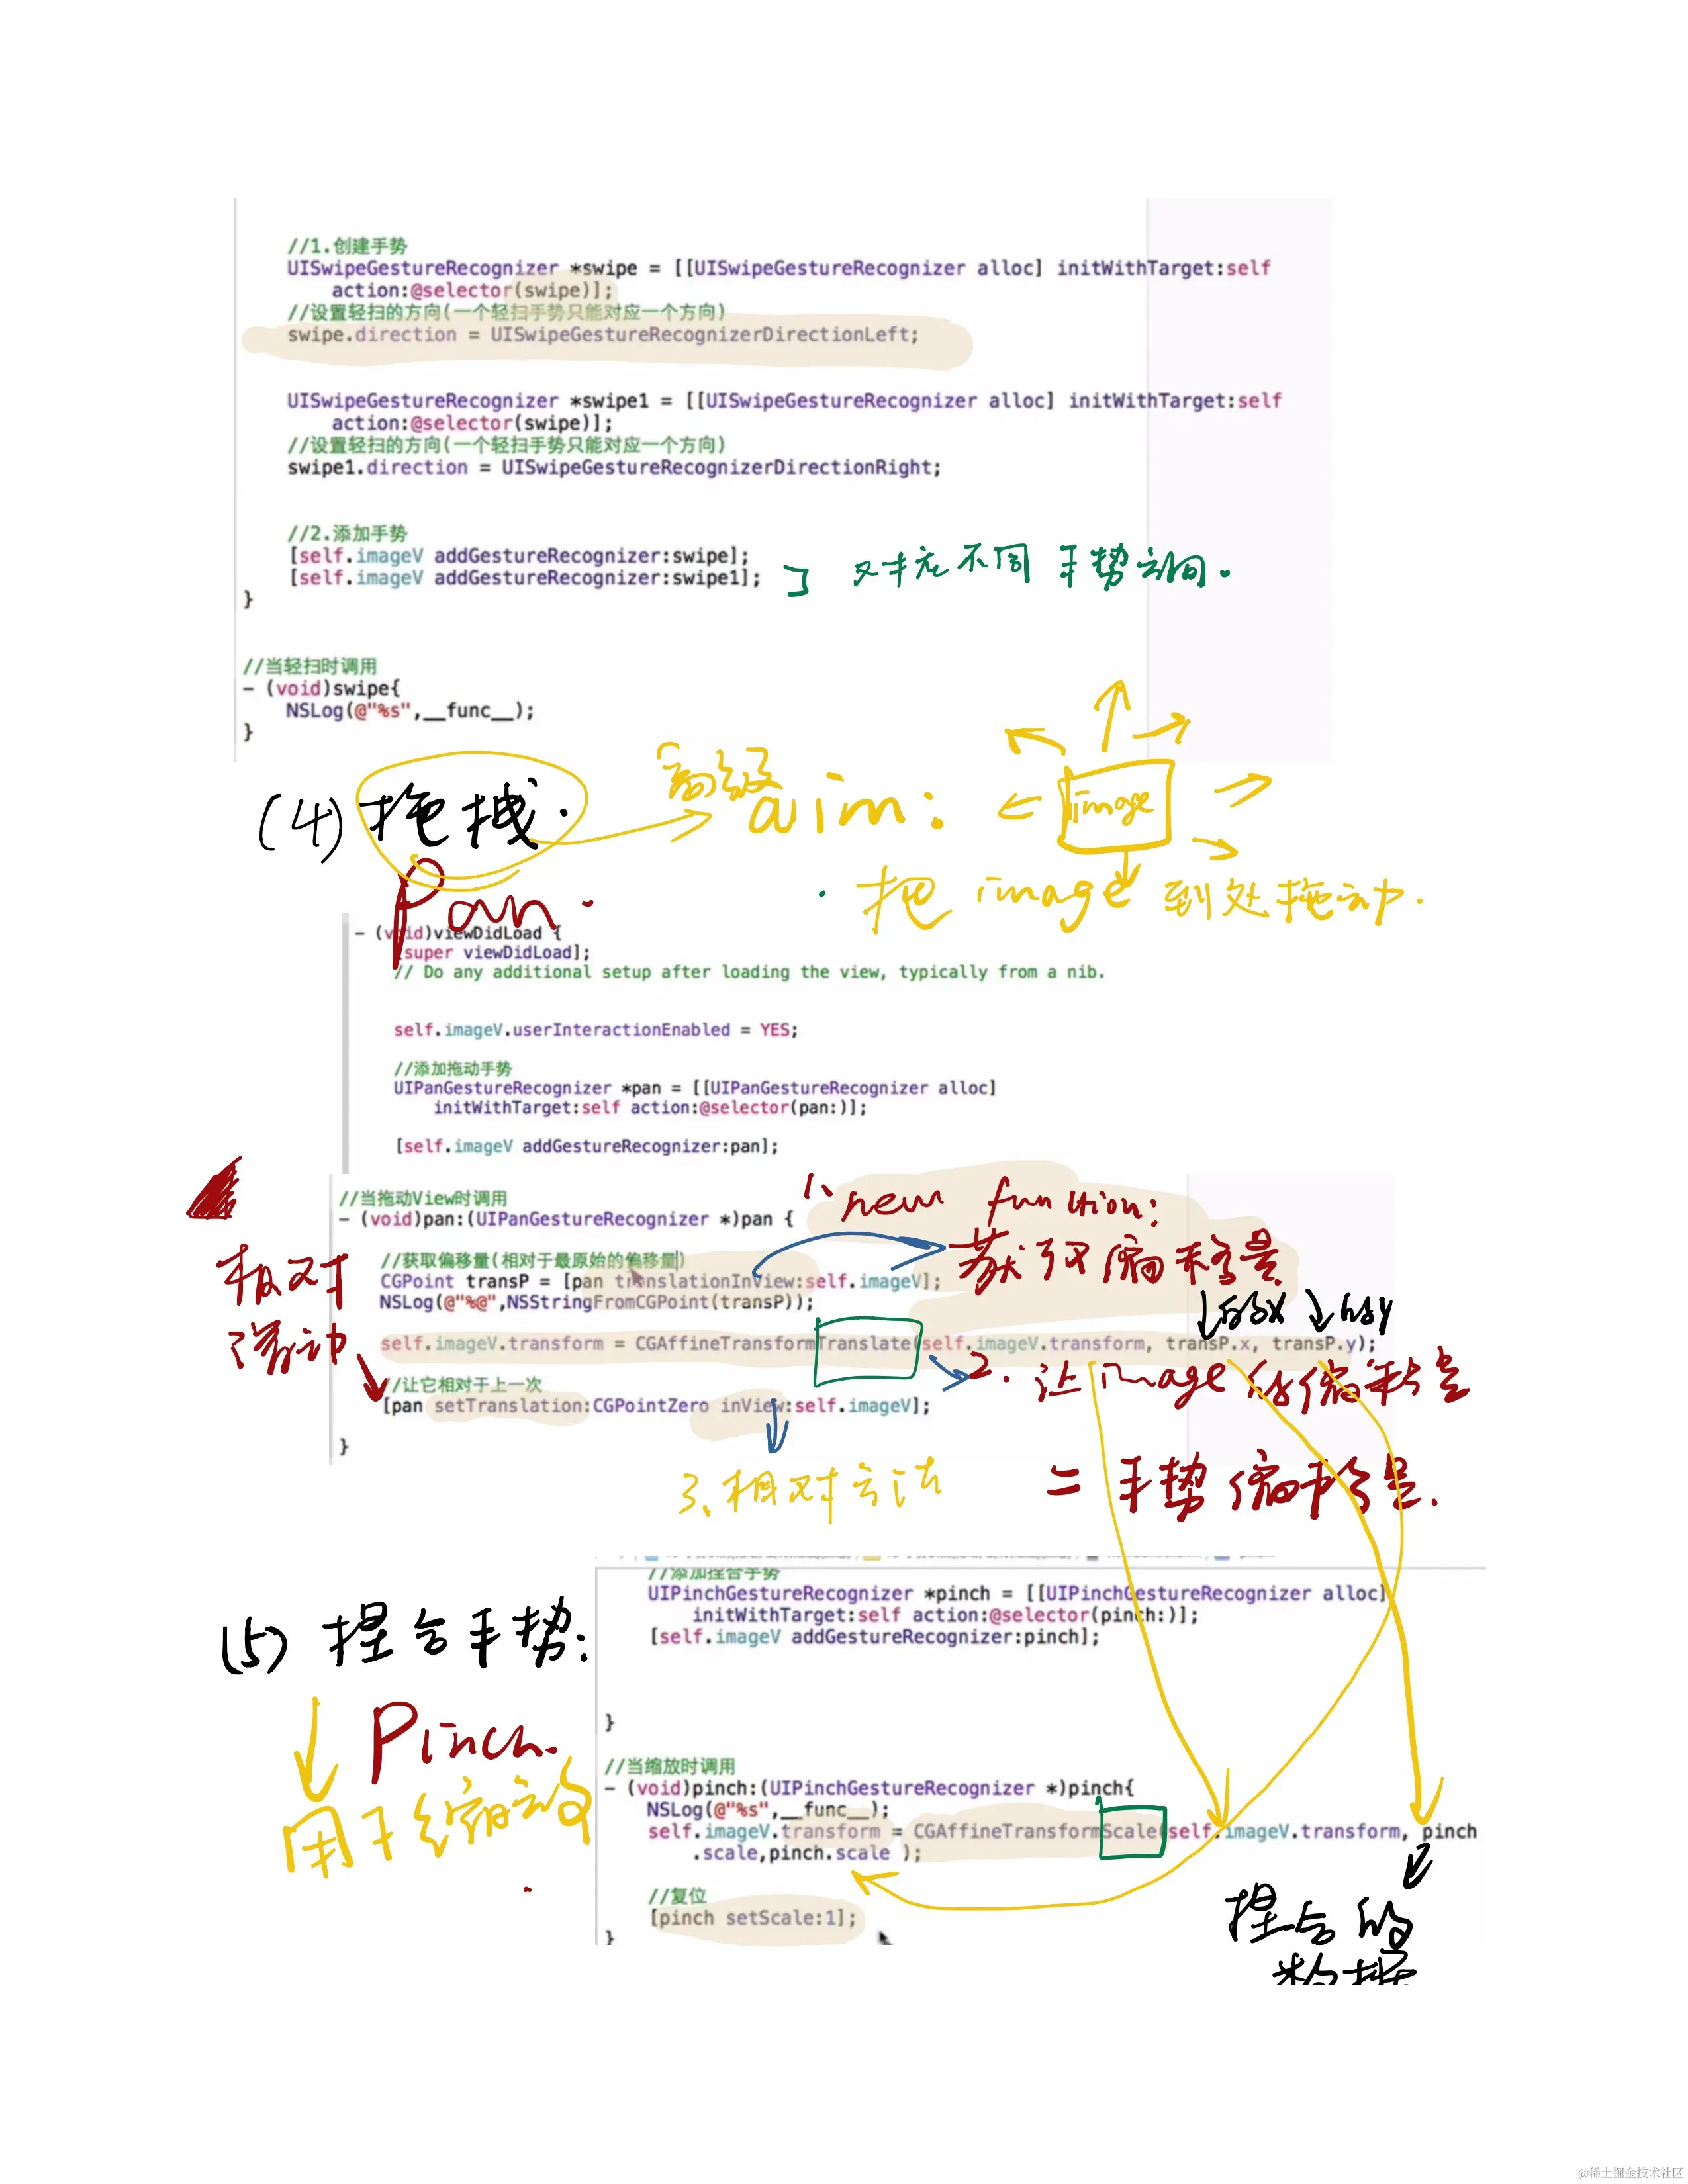 //1.创建手势
UISwipeGestureRecognizer *swipe = [[UISwipeGestureRecognizer alloc] initWithTarget:self
action:@selector(swipe)];
//设置轻扫的方向(一个轻扫手势只能对应一个方向)
swipe.direction = UISwipeGestureRecognizerDirectionLeft;
UISwipeGestureRecognizer *swipe1 = [[UISwipeGestureRecognizer alloc] initWithTarget:self
action:@selector(swipe)];
//设置轻扫的方向(一个轻扫手势只能对应一个方向)
swipe1.direction = UISwipeGestureRecognizerDirectionRight;
//2.添加手势
[self.imageV addGestureRecognizer:swipe];
[self.imageV addGestureRecognizer:swipe1];
不同手势
}
//当轻扫时调用
- (void)swipe{
NSLog(@"%s",__func__);
}
(4) 拖拽.
高级
aim:
image
Pan.
把 image 到处拖动.
- (void)viewDidLoad {
[super viewDidLoad];
// Do any additional setup after loading the view, typically from a nib.
self.imageV.userInteractionEnabled = YES;
//添加拖动手势
UIPanGestureRecognizer *pan = [[UIPanGestureRecognizer alloc]
initWithTarget:self action:@selector(pan:)];
[self.imageV addGestureRecognizer:pan];
//当拖动View时调用
- (void)pan:(UIPanGestureRecognizer *)pan {
1、new function:
获取偏移量
//获取偏移量(相对于最原始的偏移量)
CGPoint transP = [pan translationInView:self.imageV];
NSLog(@"%@",NSStringFromCGPoint(transP));
相对
滑动
的x 的y
self.imageV.transform = CGAffineTransformTranslate(self.imageV.transform, transP.x, transP.y);
2. 让image的偏移量
//让它相对于上一次
[pan setTranslation:CGPointZero inView:self.imageV];
}
3、相对方法
= 手势偏移量.
(5) 捏合手势:
Pinch.
用于缩放
//添加捏合手势
UIPinchGestureRecognizer *pinch = [[UIPinchGestureRecognizer alloc]
initWithTarget:self action:@selector(pinch:)];
[self.imageV addGestureRecognizer:pinch];
}
//当缩放时调用
- (void)pinch:(UIPinchGestureRecognizer *)pinch{
NSLog(@"%s",__func__);
self.imageV.transform = CGAffineTransformScale(self.imageV.transform, pinch
.scale,pinch.scale );
//复位
[pinch setScale:1];
}
捏合的
数据
@稀土掘金技术社区